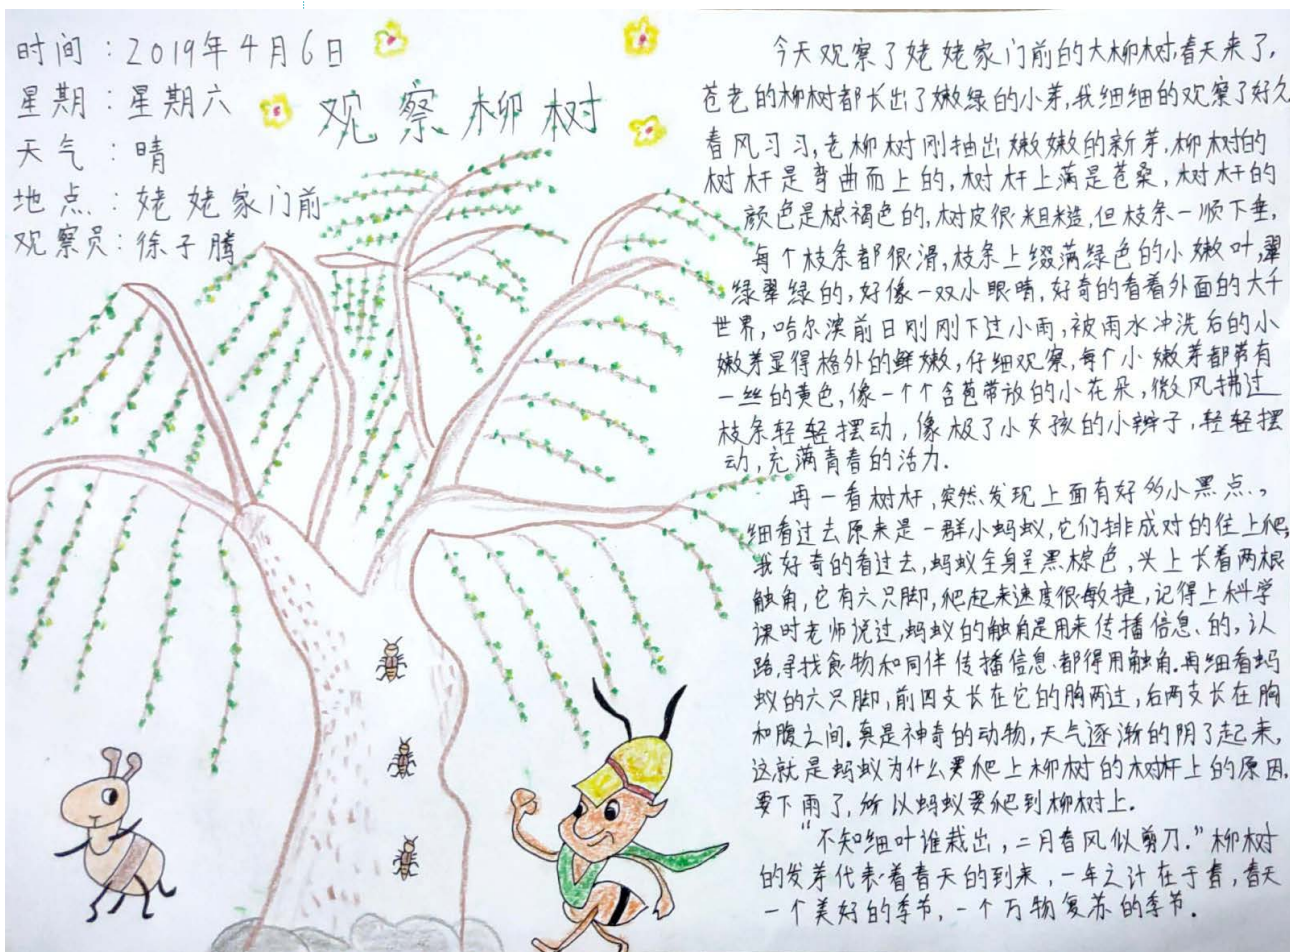 时间：2019年4月6日
星期：星期六
天气：晴
地点：姥姥家门前
观察员：徐子腾
观察柳树
今天观察了姥姥家门前的大柳树，春天来了，
苍老的柳树都长出了嫩绿的小芽，我细细的观察了好久
春风习习，老柳树刚抽出嫩嫩的新芽，柳树的
树杆是弯曲而上的，树杆上满是苍桑，树杆的
颜色是棕褐色的，树皮很粗糙，但枝条一顺下垂，
每个枝条都很滑，枝条上缀满绿色的小嫩叶，翠
绿翠绿的，好像一双小眼睛，好奇的看着外面的大千
世界，哈尔滨前日刚刚下过小雨，被雨水冲洗后的小
嫩芽显得格外的鲜嫩，仔细观察，每个小嫩芽都带有
一丝的黄色，像一个个含苞带放的小花朵，微风拂过
枝条轻轻摆动，像极了小女孩的小辫子，轻轻摆
动，充满青春的活力．
再一看树杆，突然发现上面有好多小黑点，
细看过去原来是一群小蚂蚁，它们排成对的往上爬，
我好奇的看过去，蚂蚁全身呈黑棕色，头上长着两根
触角，它有六只脚，爬起来速度很敏捷，记得上科学
课时老师说过，蚂蚁的触角是用来传播信息的，认
路，寻找食物和同伴传播信息都得用触角．再细看蚂
蚁的六只脚，前四支长在它的胸两过，后两支长在胸
和腹之间．真是神奇的动物，天气逐渐的阴了起来，
这就是蚂蚁为什么要爬上柳树的树杆上的原因．
要下雨了，所以蚂蚁要爬到柳树上．
“不知细叶谁裁出，二月春风似剪刀．”柳树
的发芽代表着春天的到来，一年之计在于春，春天
一个美好的季节，一个万物复苏的季节．